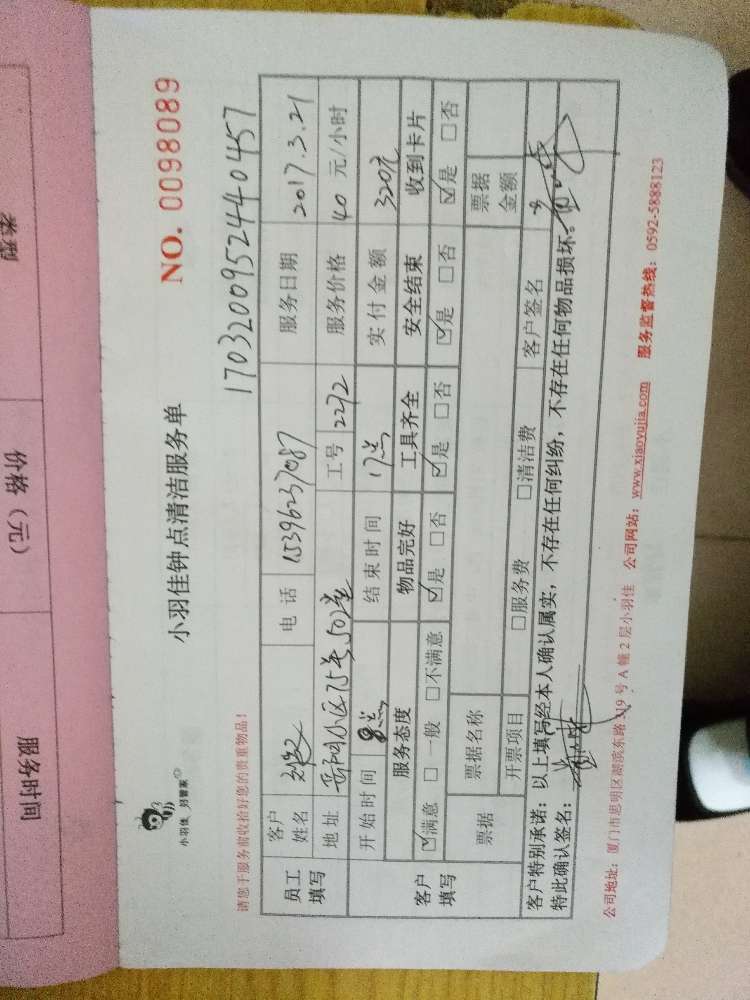 类型
价格（元）
服务时间
小羽佳 好管家
小羽佳钟点清洁服务单
NO. 0098089
请您于服务前收拾好您的贵重物品！
1703200952440457
员工填写
客户姓名
电话 15396237087
服务日期 2017.3.21
地址 岳阳小区75号502室
工号 2272
服务价格 40 元/小时
开始时间 8点
结束时间 17点
实付金额 320元
客户填写
服务态度 物品完好 工具齐全 安全结束 收到卡片
☑满意 □一般 □不满意 ☑是 □否 ☑是 □否 ☑是 □否 ☑是 □否
票据
票据名称
票据金额
开票项目 □服务费 □清洁费 客户签名
客户特别承诺：以上填写经本人确认属实，不存在任何纠纷，不存在任何物品损坏。
特此确认签名：
公司地址：厦门市思明区湖滨东路319号A幢2层小羽佳 公司网站：www.xiaoyujia.com 服务监督热线：0592-5888123